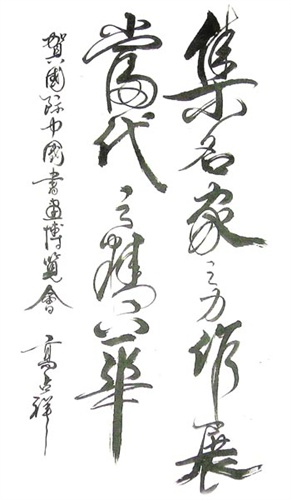 集名家之力作展
當代之精華
賀國际中國書画博覽會
高占祥